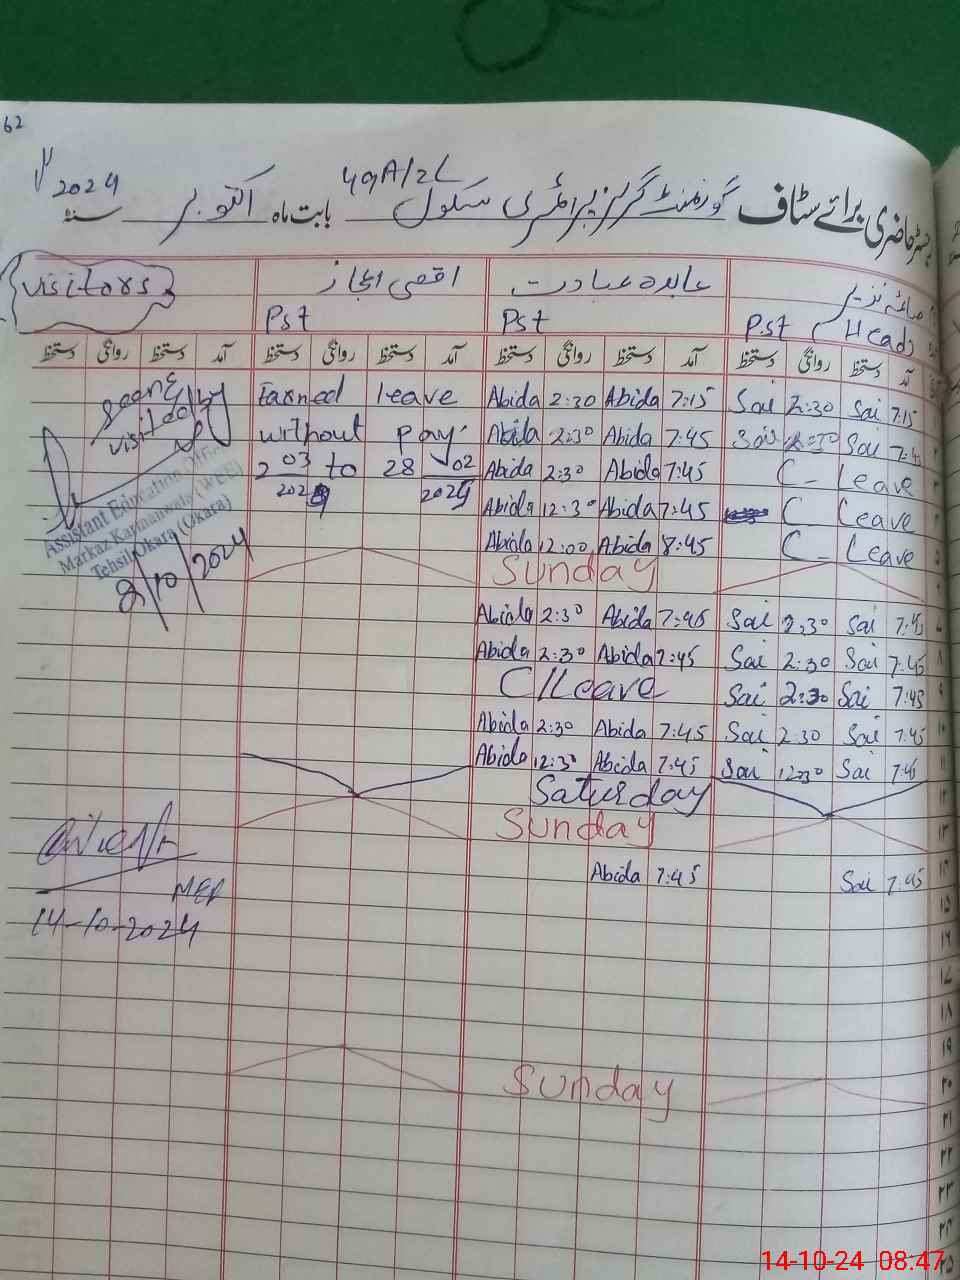 62
رجسٹر حاضری برائے سٹاف گورنمنٹ گرلز پرائمری سکول 49A/2L بابت ماہ اکتوبر سنہ 2024
visitors
اقصیٰ اعجاز
عابدہ عبادت
صائمہ نذیر
Pst
Pst
P.st Head
آمد دستخط روانگی دستخط آمد دستخط روانگی دستخط آمد دستخط روانگی دستخط آمد دستخط روانگی دستخط
Seen & visited by
Earned leave Abida 2:30 Abida 7:15 Sai 2:30 Sai 7:15
without pay Abida 2:30 Abida 7:45 Sai 2:30 Sai 7:45
2 03 to 28 02 Abida 2:30 Abida 7:45 C - Leave
2024 Abida 12:30 Abida 7:45 C Leave
Abida 12:00 Abida 8:45 C - Leave
Assistant Education
Markaz Karmanwala (WEE)
Tehsil Okara (Okara)
8/10/2024
Sunday
Abida 2:30 Abida 7:45 Sai 2:30 Sai 7:45 ۷
Abida 2:30 Abida 7:45 Sai 2:30 Sai 7:45 ۸
C/Leave Sai 2:30 Sai 7:45 ۹
Abida 2:30 Abida 7:45 Sai 2:30 Sai 7:45 ۱۰
Abida 12:30 Abida 7:45 Sai 12:30 Sai 7:45 ۱۱
Saturday ۱۲
Sunday ۱۳
Abida 7:45 Sai 7:45 ۱۴
MEA
14-10-2024
۱۵
۱۶
۱۷
۱۸
۱۹
Sunday ۲۰
۲۱
۲۲
۲۳
۲۴
۲۵
14-10-24 08:47